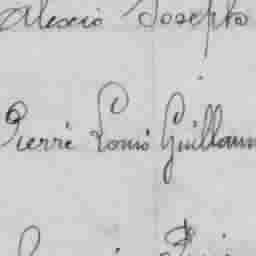 Alexis Joseph
Pierre Louis Guillaum